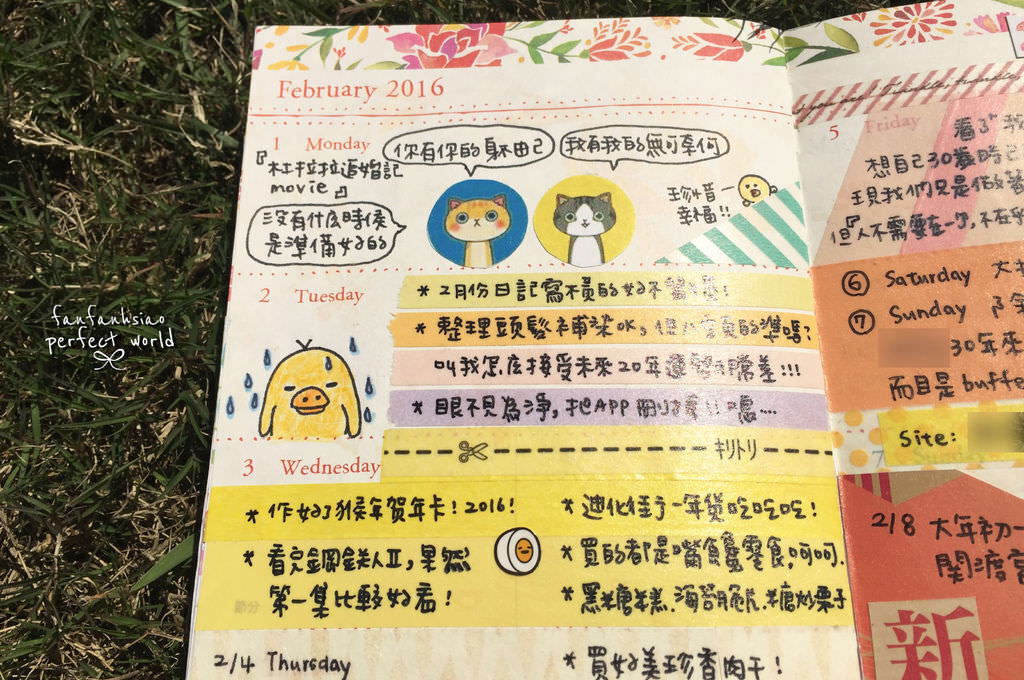 February 2016
1 Monday
『杜拉拉追婚記
movie』
你有你的身不由己
我有我的無可奈何
沒有什麼時候
是準備好的
珍惜
幸福!!
2 Tuesday
* 2月份日記寫
* 整理頭髮補染OK,但
叫我怎麼接受未來20年運勢 差!!!
* 眼不見為淨,把APP刪
キリトリ
3 Wednesday
* 作好了猴年賀年卡!2016!
* 看完鋼鐵人Ⅱ,果然
第一集比較好看!
節分
* 迪化街 年貨吃吃吃!
* 買的都是 零食,呵呵.
* 黑糖糕.海苔脆片.糖炒栗子
2/4 Thursday
* 買好美珍香肉干!
5 Friday
看了
想自己30歲時
現我們只是做
但『人不需要在
⑥ Saturday 大
⑦ Sunday
30年來
而且是buffe
Site:
7 Sunday
2/8 大年初一
關渡宮
新
fanfanhsiao
perfect world